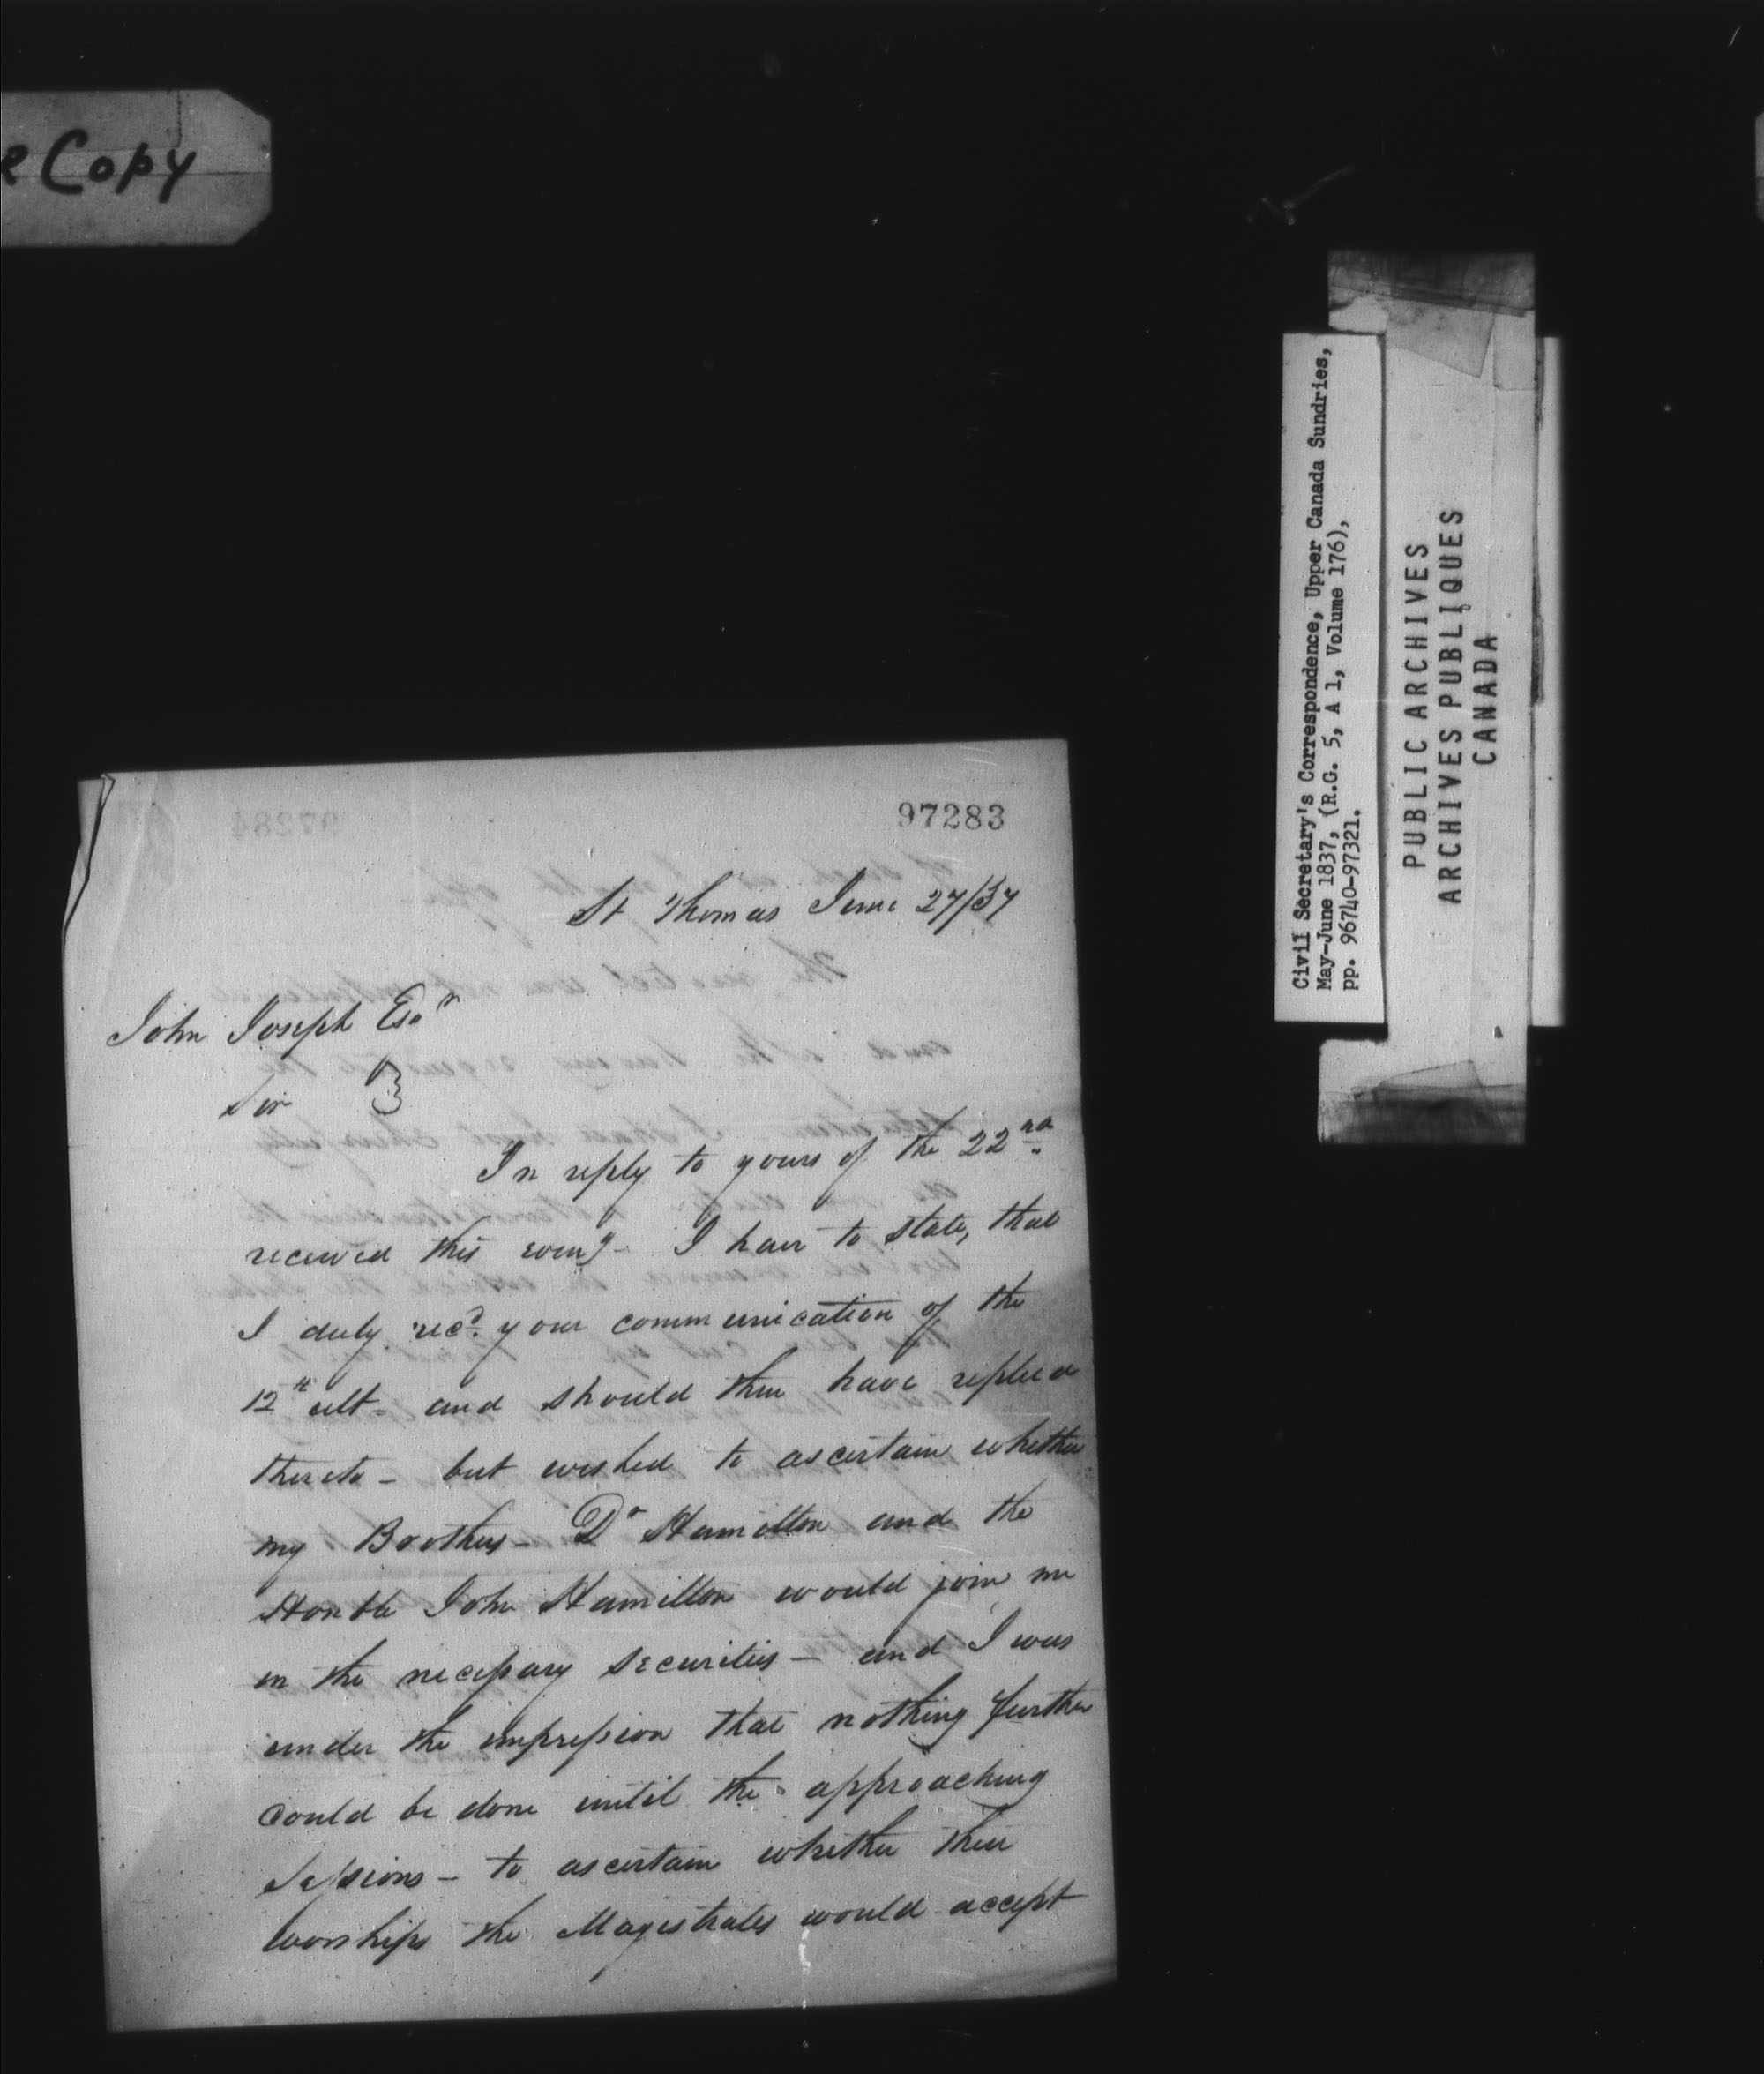 e Copy
Civil Secretary's Correspondence, Upper Canada Sundries,
May-June 1837, (R.G. 5, A 1, Volume 176),
pp. 96740-97321.
PUBLIC ARCHIVES
ARCHIVES PUBLIQUES
CANADA
97283
St Thomas June 27/37
John Joseph Esqr
Sir
In reply to yours of the 22nd
received this eveng - I have to state, that
I duly recd. your communication of the
12th ult - and should then have replied
thereto - but wished to ascertain whether
my Brothers - Dr Hamilton and the
Honble John Hamilton would join me
in the necessary securities - and I was
under the impression that nothing further
could be done until the approaching
Sessions - to ascertain whether their
Worships the Magistrates would accept